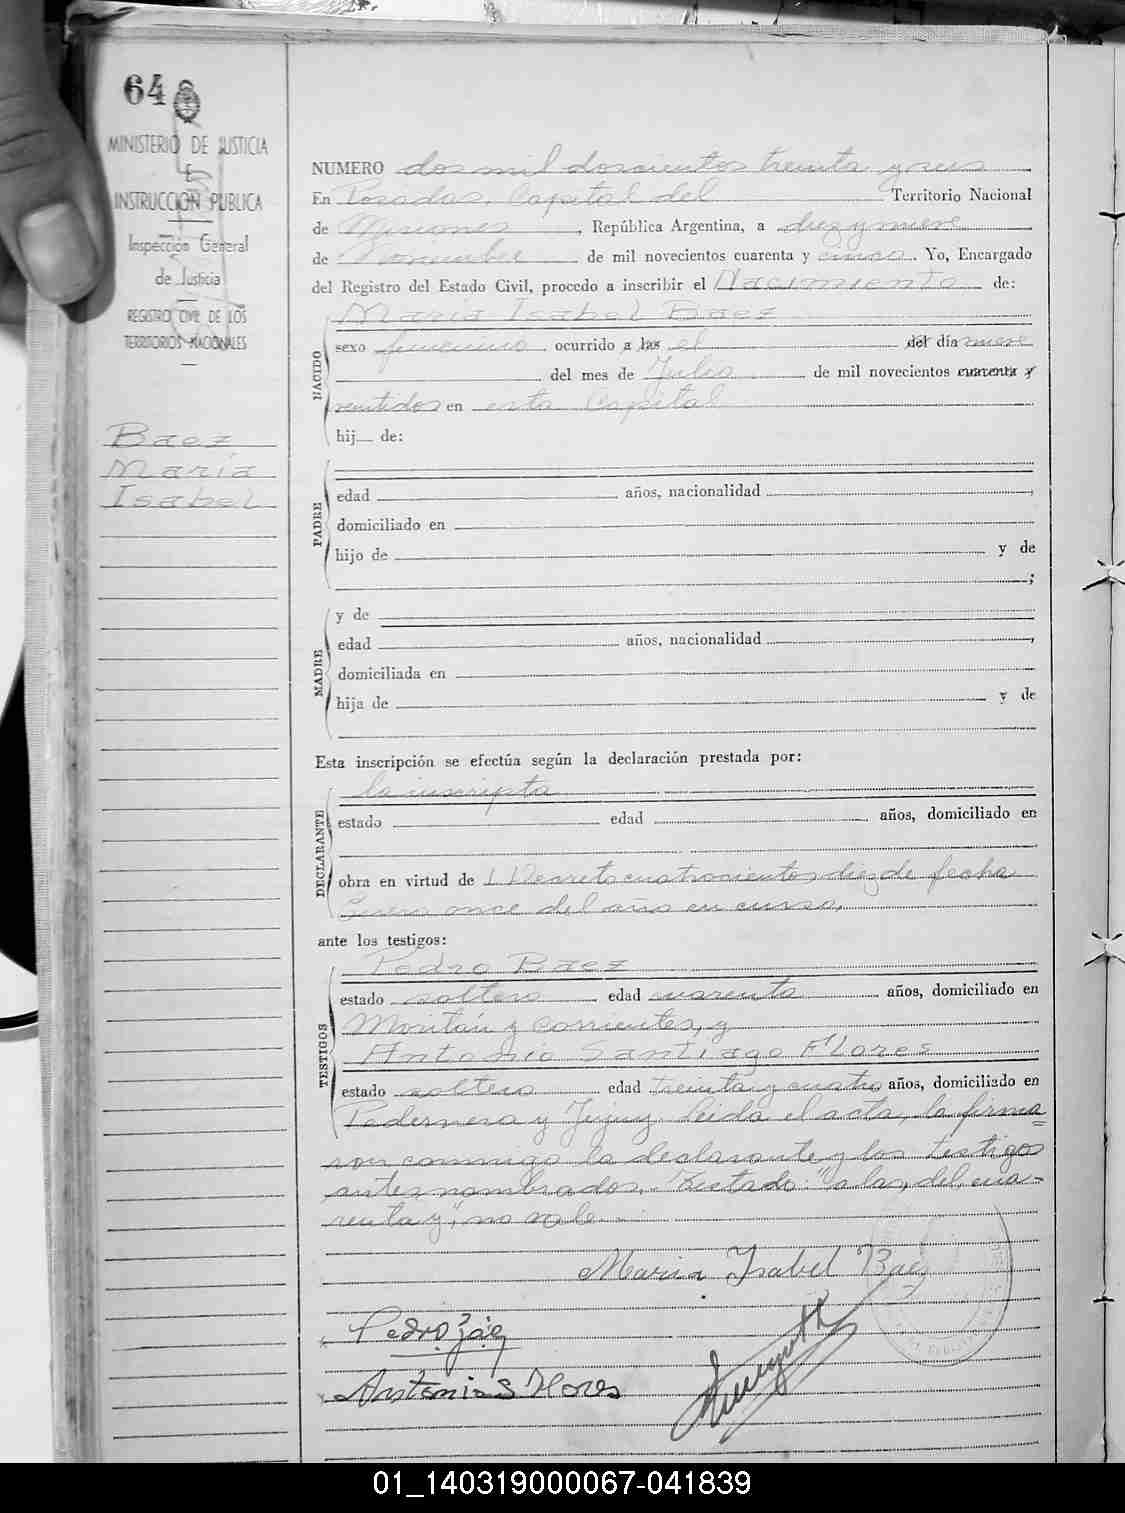 64
MINISTERIO DE JUSTICIA
E
INSTRUCCION PUBLICA
Inspección General
de Justicia
REGISTRO CIVIL DE LOS
TERRITORIOS NACIONALES
Baez
María
Isabel
NUMERO dos mil doscientos treinta y seis
En Posadas, Capital del Territorio Nacional
de Misiones, República Argentina, a diez y nueve
de Noviembre de mil novecientos cuarenta y cinco. Yo, Encargado
del Registro del Estado Civil, procedo a inscribir el Nacimiento de:
NACIDO
María Isabel Baez
sexo femenino ocurrido a las el del día nueve
del mes de Julio de mil novecientos cuarenta y
veintidos en esta Capital
hij de:
PADRE
edad años, nacionalidad ,
domiciliado en
hijo de y de
;
MADRE
y de
edad años, nacionalidad ,
domiciliada en
hija de y de
Esta inscripción se efectúa según la declaración prestada por:
DECLARANTE
la inscripta
estado edad años, domiciliado en
obra en virtud de l Decreto cuatrocientos diez de fecha
Enero once del año en curso,
ante los testigos:
TESTIGOS
Pedro Baez
estado soltero edad cuarenta años, domiciliado en
y Corrientes, y
Antonio Santiago Flores
estado soltero edad treinta y cuatro años, domiciliado en
Pedernera y Jujuy. Leida el acta, la firma=
ron conmigo la declarante y los testigos
antes nombrados. Testado: "a las, del, cua-
renta y", no vale.
Maria Isabel Baez
x Pedro Báez
x Antonio S Flores
01_140319000067-041839